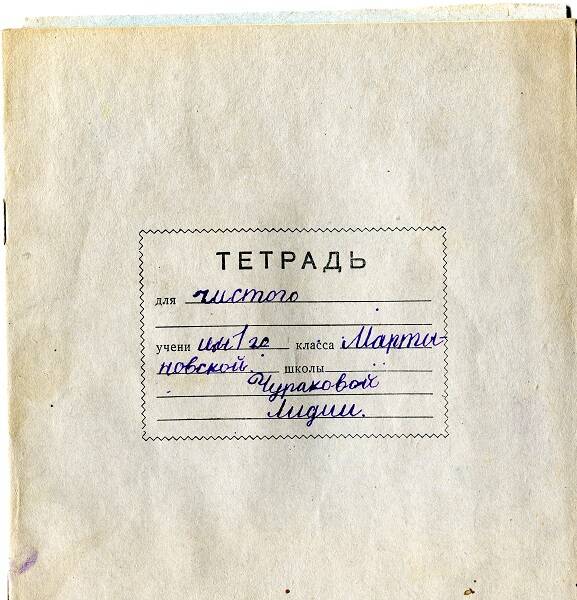 ТЕТРАДЬ
для чистого
учени цы 1го класса Марты-
новской школы
Чураковой
Лидии.